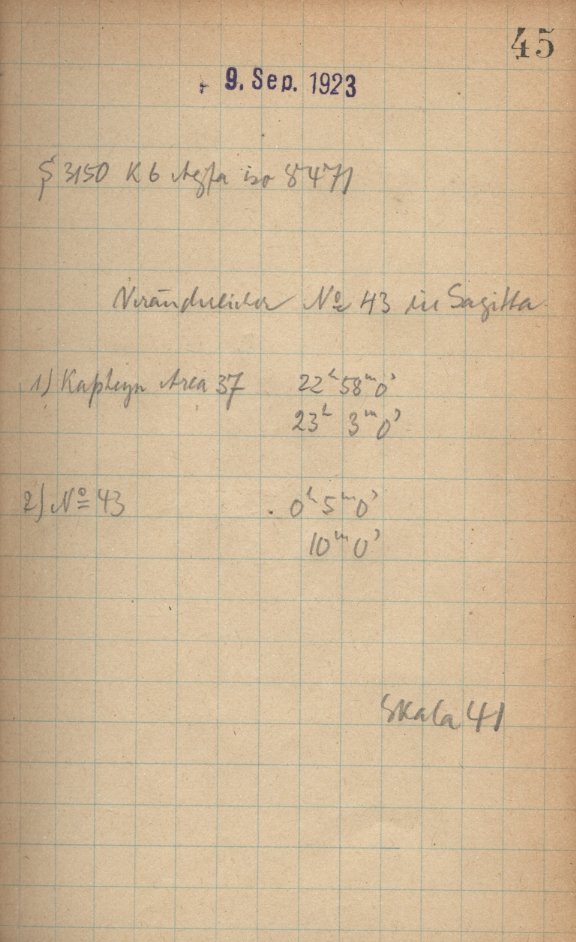 45
9. Sep. 1923
S 3150 K 6 Agfa iso 8471
Veränderlicher No 43 in Sagitta
1) Kapteyn Area 37 22h 58m 0s
23h 3m 0s
2) No 43 0h 5m 0s
10m 0s
Skala 41